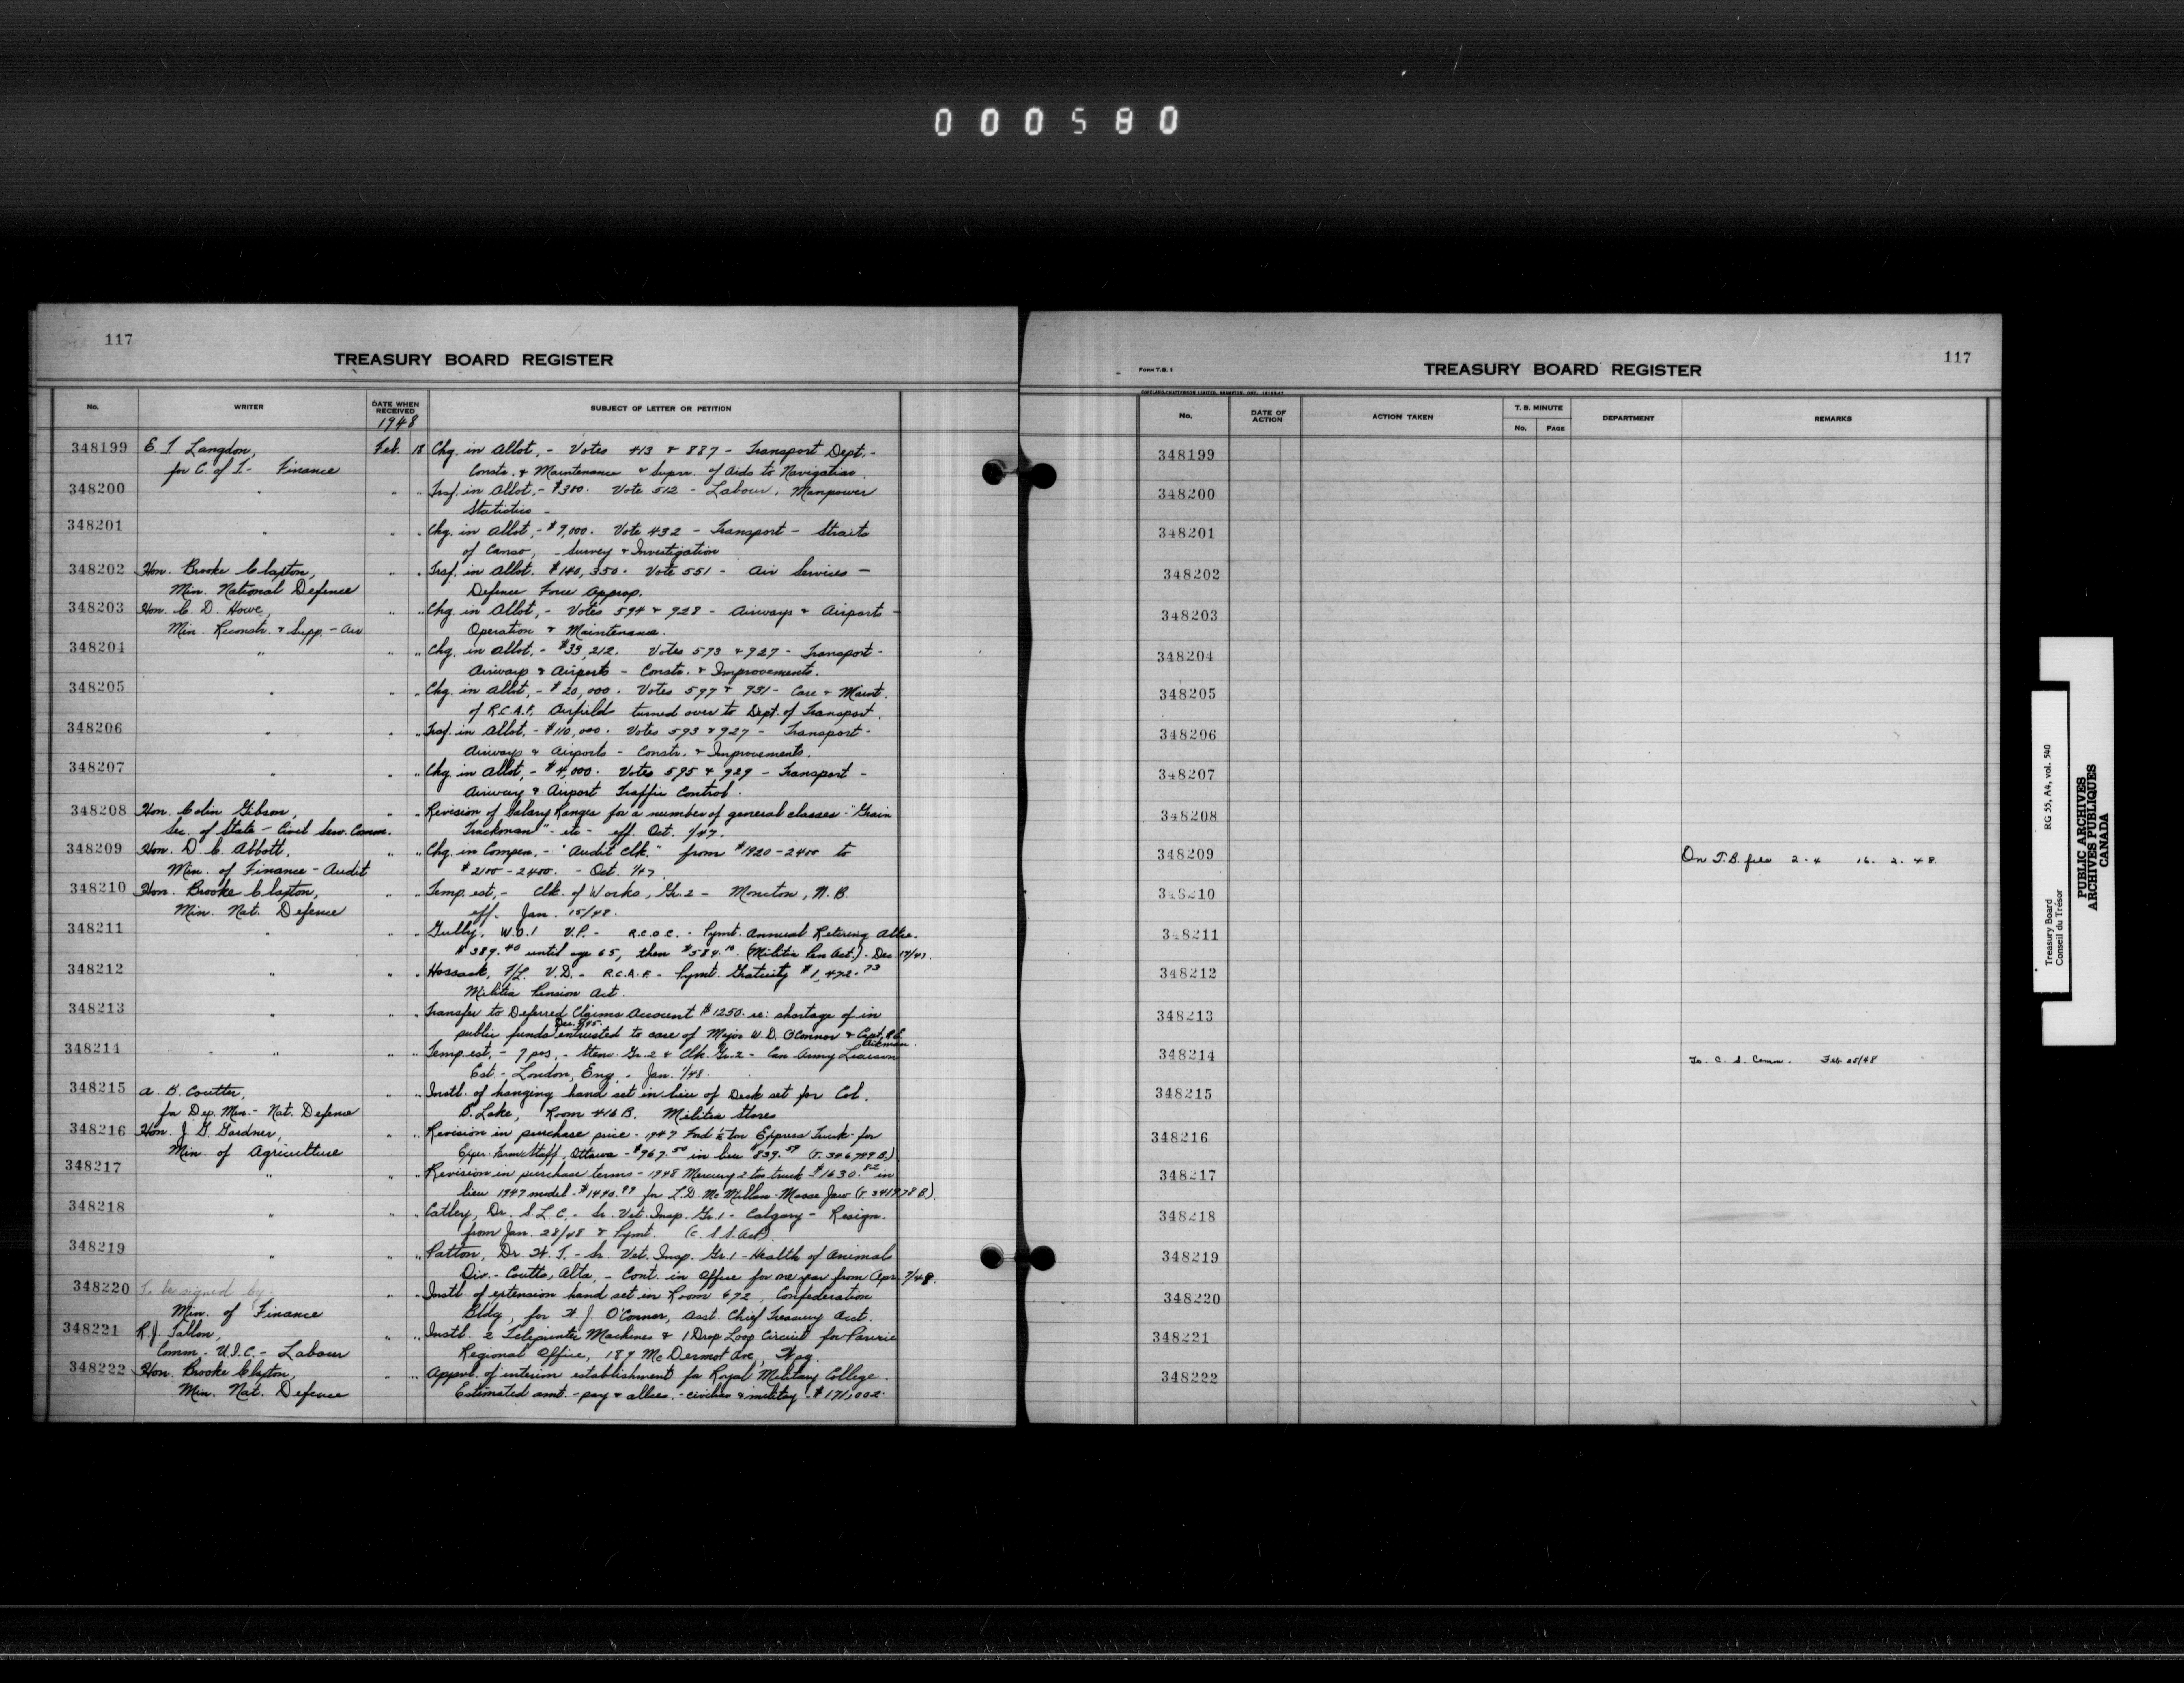 000580
117
TREASURY BOARD REGISTER
No. WRITER DATE WHEN RECEIVED SUBJECT OF LETTER OR PETITION
1948
348199 E. T Langdon, Feb. 18 Chg. in Allot, - Votes 413 & 887 - Transport Dept. -
for C. of T. - Finance Constr. & Maintenance & Superv. of Aids to Navigation.
348200 " " " Trsf. in Allot, - $300. Vote 512 - Labour, Manpower
Statistics -
348201 " " " Chg. in Allot, - $9,000. Vote 432 - Transport - Straits
of Canso, - Survey & Investigation
348202 Hon. Brooke Claxton, " " Trsf. in Allot. $140,350. Vote 551 - Air Services -
Min. National Defence Defence Force Approp.
348203 Hon. C. D. Howe, " " Chg. in Allot, - Votes 594 & 928 - Airways & Airports -
Min. Reconstr. & Supp. - Air Operation & Maintenance.
348204 " " " Chg. in Allot. - $33,212. Votes 593 & 927 - Transport -
Airways & Airports - Constr. & Improvements.
348205 " " " Chg. in Allot, - $20,000. Votes 597 & 931 - Care & Maint.
of R.C.A.F. Airfields turned over to Dept. of Transport.
348206 " " " Trsf. in Allot. - $110,000. Votes 593 & 927 - Transport -
Airways & Airports - Constr. & Improvements.
348207 " " " Chg. in Allot, - $4,000. Votes 595 & 929 - Transport -
Airway & Airport Traffic Control.
348208 Hon. Colin Gibson, " " Revision of Salary Ranges for a number of general classes - "Grain
Sec. of State - Civil Serv. Comm. Trackman" - etc - eff. Oct. 1/47.
348209 Hon. D. C. Abbott, " " Chg. in Compen. - "Audit Clk." from $1920 - 2400 to
Min. of Finance - Audit $2100 - 2400. - Oct. 1/47.
348210 Hon. Brooke Claxton, " " Temp. est, - Clk. of Works, Gr. 2 - Moncton, N.B.
Min. Nat. Defence eff. Jan. 15/48.
348211 " " " Gully, W.O.1 V.P. - R.C.O.C. - Pymt. Annual Retiring Allce.
$389.40 until age 65, then $584.10 (Militia Pen Act.) - Dec. 17/47.
348212 " " " Hossack, F/L. V.D. - R.C.A.F. - Pymt. Gratuity $1,472.73
Militia Pension Act.
348213 " " " Transfer to Deferred Claims Account $1250. re: shortage of in
public funds entrusted to care of Major W. D. O'Connor & Capt. R.E.
Aikman.
348214 " " " Temp. est, - 7 pos, - Steno Gr. 2 & Clk. Gr. 2 - Can Army Liaison
Est. - London, Eng. - Jan. 1/48.
348215 A. B. Coulter, " " Instl. of hanging hand set in lieu of Desk set for Col.
for Dep. Min. - Nat. Defence D. Lake, Room 416 B. Militia Stores
348216 Hon. J. G. Gardner, " " Revision in purchase price - 1947 Ford ½ ton Express Truck - for
Min. of Agriculture Exper. Farms Staff, Ottawa - $967.50 in lieu $839.59 (T. 346749 B.)
348217 " " " Revision in purchase terms - 1948 Mercury 2 ton truck - $1630.82 in
lieu 1947 model - $1490.99 for L. D. McMillan - Moose Jaw (T. 341978 B).
348218 " " " Catley, Dr. S. L. C. - Sr. Vet. Insp. Gr. 1 - Calgary - Resign.
from Jan. 28/48 & Pymt. (C. S. S. Act)
348219 " " " Patton, Dr. H. T. - Sr. Vet. Insp. Gr. 1 - Health of Animals
Div. - Coutts, Alta, - Cont. in Office for one year from Apr. 7/48.
348220 To be signed by - " " Instl. of extension hand set in Room 672, Confederation
Min. of Finance Bldg, for H. J. O'Connor, Asst. Chief Treasury Acct.
348221 R. J. Tallon, " " Instl. 2 Teleprinter Machines & 1 Drop Loop Circuit for Prairie
Comm. - U.I.C. - Labour Regional Office, 189 McDermot Ave, Wpg.
348222 Hon. Brooke Claxton, " " Approvl. of interim establishment for Royal Military College.
Min. Nat. Defence Estimated amt. - pay & allces. - civilian & military - $171,002.
117
FORM T.B. 1
TREASURY BOARD REGISTER
No. DATE OF ACTION ACTION TAKEN T. B. MINUTE DEPARTMENT REMARKS
No. PAGE
348199
348200
348201
348202
348203
348204
348205
348206
348207
348208
348209 On T.B. files 2-4 16. 2. 48.
348210
348211
348212
348213
348214 To C. S. Comm. Feb 25/48
348215
348216
348217
348218
348219
348220
348221
348222
Treasury Board RG 55, A4, vol. 540
Conseil du Trésor
PUBLIC ARCHIVES
ARCHIVES PUBLIQUES
CANADA